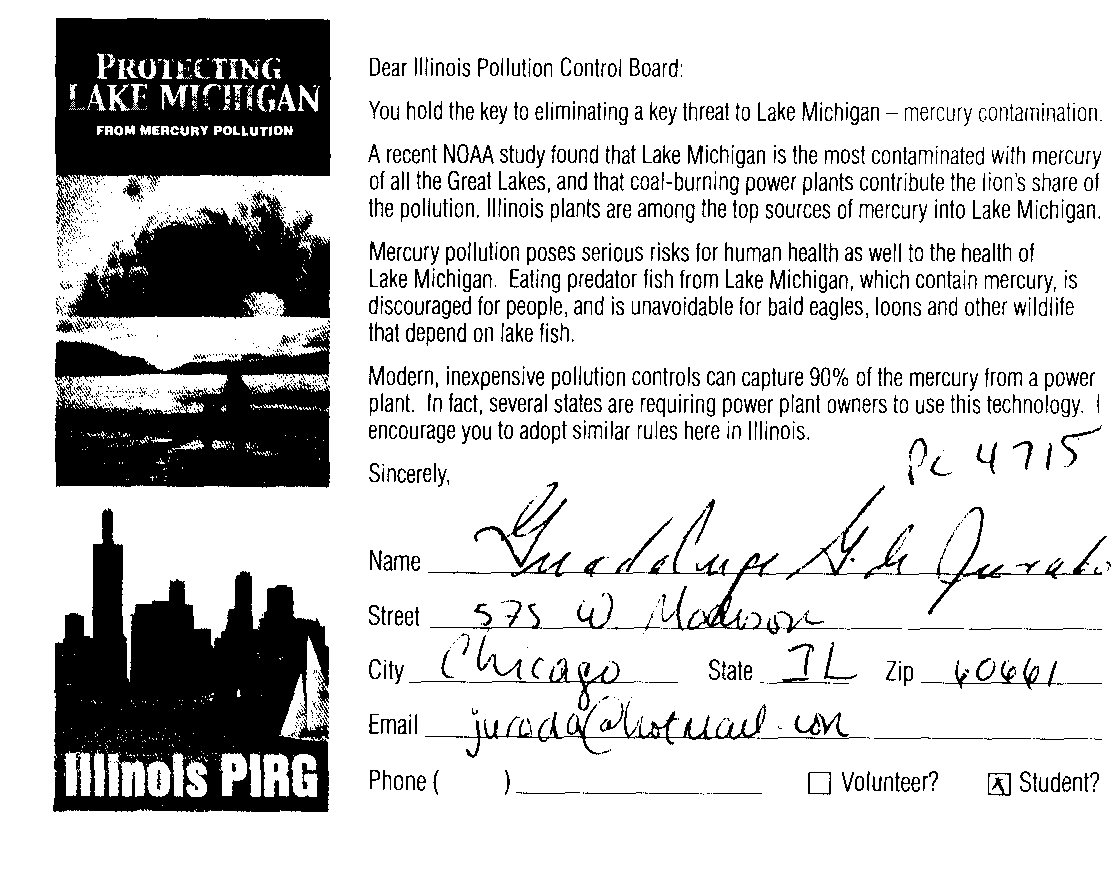 PROTECTING
LAKE MICHIGAN
FROM MERCURY POLLUTION
Illinois PIRG
Dear Illinois Pollution Control Board:
You hold the key to eliminating a key threat to Lake Michigan – mercury contamination.
A recent NOAA study found that Lake Michigan is the most contaminated with mercury
of all the Great Lakes, and that coal-burning power plants contribute the lion's share of
the pollution. Illinois plants are among the top sources of mercury into Lake Michigan.
Mercury pollution poses serious risks for human health as well to the health of
Lake Michigan. Eating predator fish from Lake Michigan, which contain mercury, is
discouraged for people, and is unavoidable for bald eagles, loons and other wildlife
that depend on lake fish.
Modern, inexpensive pollution controls can capture 90% of the mercury from a power
plant. In fact, several states are requiring power plant owners to use this technology. I
encourage you to adopt similar rules here in Illinois.
PC 4715
Sincerely,
Name Guadalupe G. de Jurado
Street 575 W. Madison
City Chicago State IL Zip 60661
Email @hotmail.com
Phone ( )
Volunteer? Student?